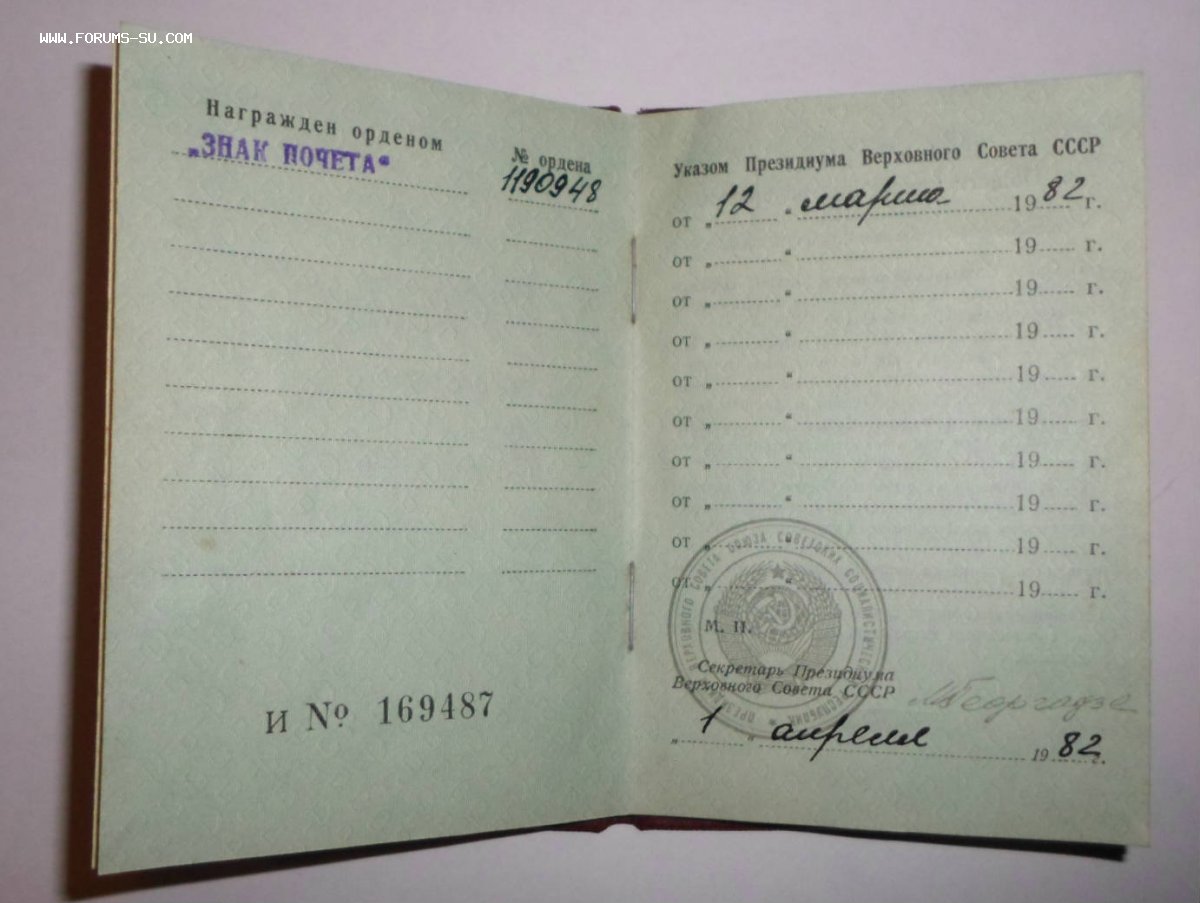 WWW.FORUMS-SU.COM
Награжден орденом
„ЗНАК ПОЧЕТА“
№ ордена
1190948
И № 169487
Указом Президиума Верховного Совета СССР
от „ 12 “ марта 1982 г.
от „ “ 19 г.
от „ “ 19 г.
от „ “ 19 г.
от „ “ 19 г.
от „ “ 19 г.
от „ “ 19 г.
от „ “ 19 г.
от „ “ 19 г.
от „ “ 19 г.
М. П.
ВЕРХОВНОГО СОВЕТА СОЮЗА СОВЕТСКИХ СОЦИАЛИСТИЧЕСКИХ РЕСПУБЛИК
Секретарь Президиума
Верховного Совета СССР
МГеоргадзе
„ 1 “ апреля 1982 г.